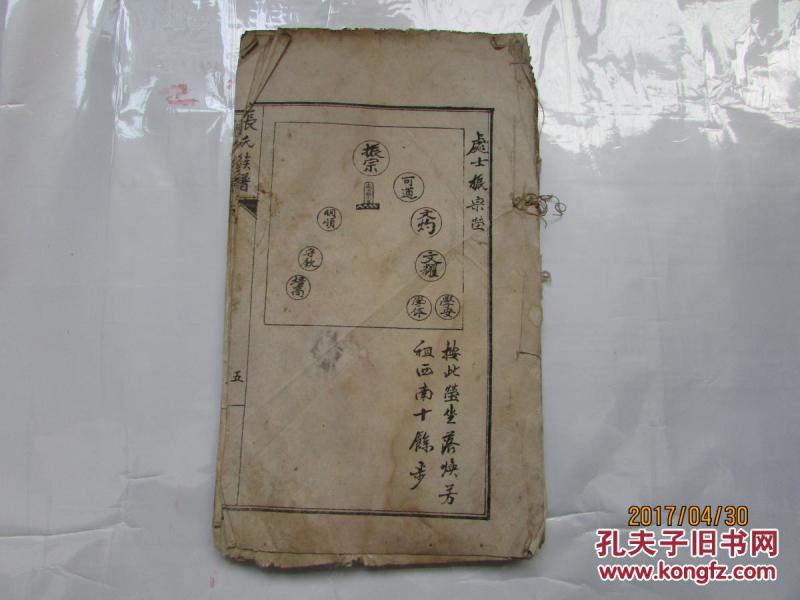 處士振宗塋
振宗
可遵
文灼
文耀
學安
明順
守欽
按此塋坐落煥芳
祖西南十餘步
張氏族譜
五
2017/04/30
孔夫子旧书网
www.kongfz.com